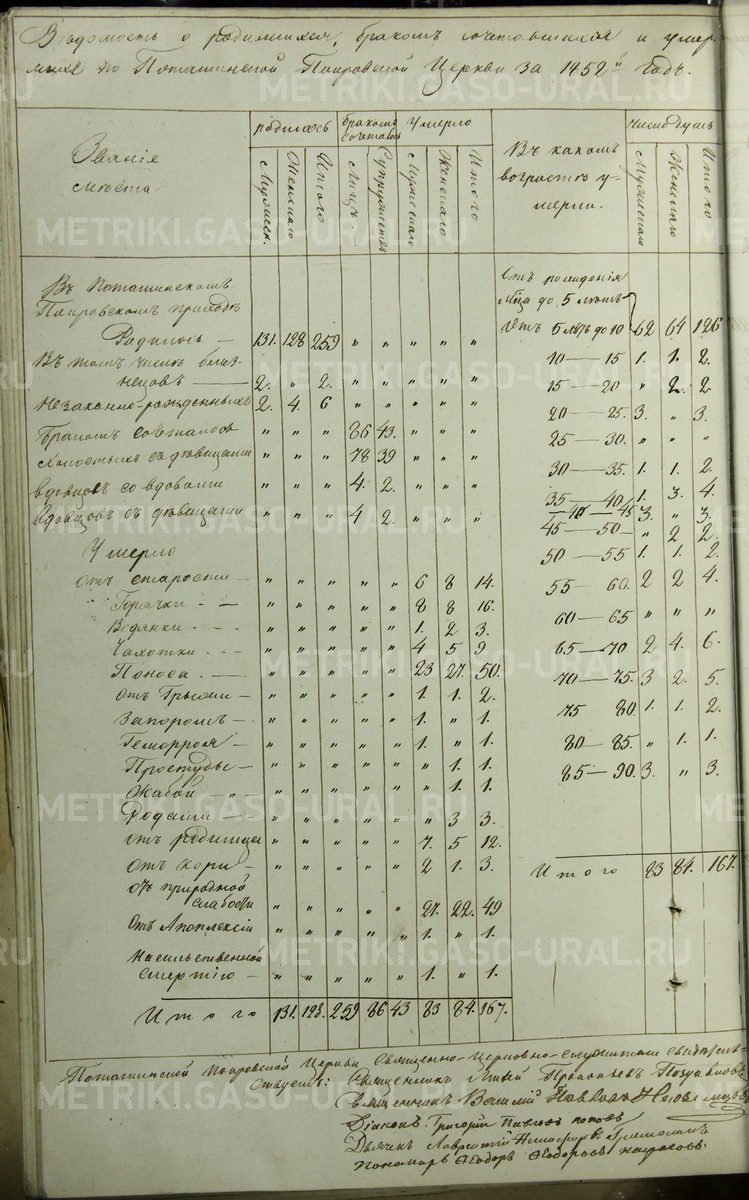 Ведомость о родившихся, бракомъ сочетавшихся и умер
шихъ по Поташинской Покровской Церкви за 1852й годъ.
Званіе
мѣста.
родилось
Мужеск.
Женскаго
Итого
бракомъ сочетались
Лицъ
Супружествъ
Умерло
Мужескаго
Женскаго
Итого
Въ какомъ
возрастѣ у-
мерли.
Число душъ
Мужескаго
Женскаго
Итого
Въ Поташинскомъ
Покровскомъ приходѣ
Родилось — 131. 128 259 " " " " "
Въ томъ числѣ близ-
нецовъ — 2. " 2. " " " " "
Незаконно-рожденныхъ 2. 4. 6 " " " " "
Бракомъ совталось " " " 86 43. " " "
Холостыхъ съ дѣвицами " " " 78 39 " " "
вдовцовъ со вдовами " " " 4. 2. " " "
вдовцовъ съ дѣвицами " " " 4 2. " " "
Умерло
отъ старости — " " " " " 6 8 14.
Горячки — " " " " " 8 8 16.
Водянки " " " " " 1. 2 3.
Чахотки " " " " " 4 5 9
Поноса — " " " " " 23 27. 50.
отъ Грыжи — " " " " " 1. 1. 2.
Запоромъ — " " " " " 1. " 1.
Геморроя — " " " " " 1. " 1.
Простуды — " " " " " " 1. 1.
Жабой " " " " " " 1. 1.
Родами " " " " " " 3 3.
отъ родимца " " " " " 7. 5 12.
отъ кори — " " " " " 2 1. 3.
отъ природной
слабости " " " " " 27. 22. 49
отъ Апоплексіи " " " " " 1. " 1.
Насильственной
смертію — " " " " " 1. " 1.
Итого 131. 128. 259 86 43 83 84. 167.
Отъ рожденія
до 5 лѣтъ
Отъ 5 лѣтъ до 10 62 64 126
10 — 15 1. 1. 2.
15 — 20 " 2. 2
20 — 25. 3. " 3.
25 — 30. " " "
30 — 35. 1. 1. 2.
35 — 40 1. 3. 4.
40 — 45 3. " 3.
45 — 50 — " 2 2.
50 — 55 1. 1. 2.
55 — 60. 2 2 4.
60 — 65 " " "
65 — 70 2 4. 6.
70 — 75. 3 2. 5.
75 80 1. 1. 2.
80 — 85. " 1. 1.
85 — 90. 3. " 3.
Итого 83 84. 167.
Поташинской Покровской Церкви Священно-Церковно-служители свидѣтель-
ствуемъ: Священникъ
Священникъ Василій
Діаконъ Григорій Павловъ Поповъ
Дьячекъ Лаврентій
Пономарь Ѳеодоръ Ѳеодоровъ Некрасовъ.
METRIKI.GASO-URAL.RU